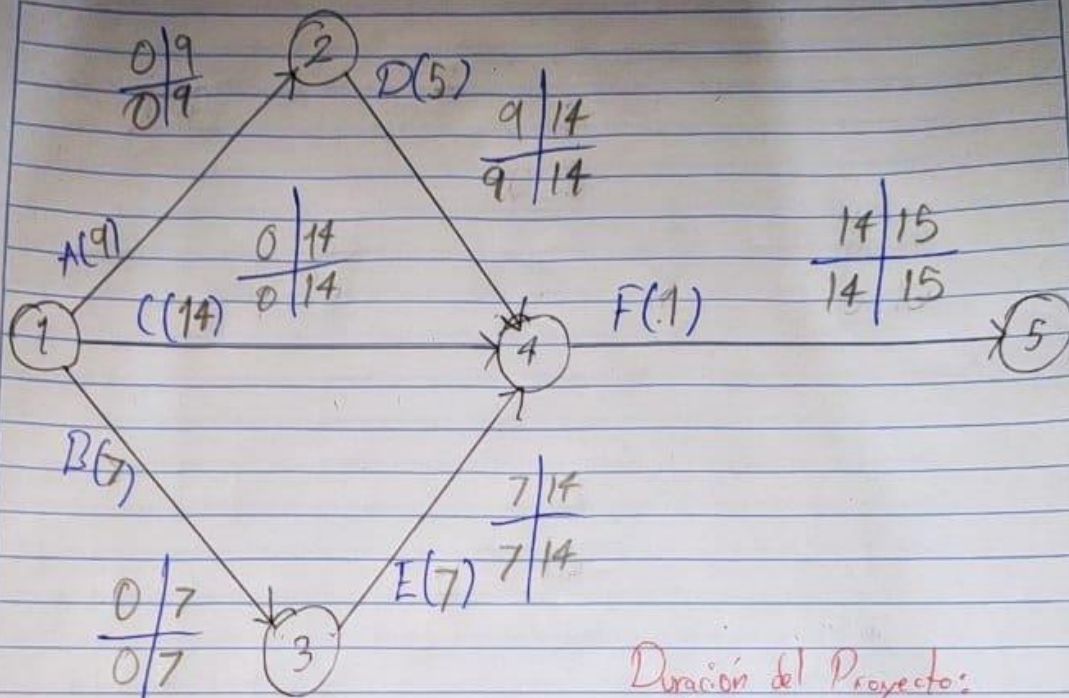 0 9
0 9
2
D(5)
9 14
9 14
A(9)
0 14
0 14
14 15
14 15
1
C(14)
4
F(1)
5
B(7)
7 14
7 14
E(7)
0 7
0 7
3
Duración del Proyecto: